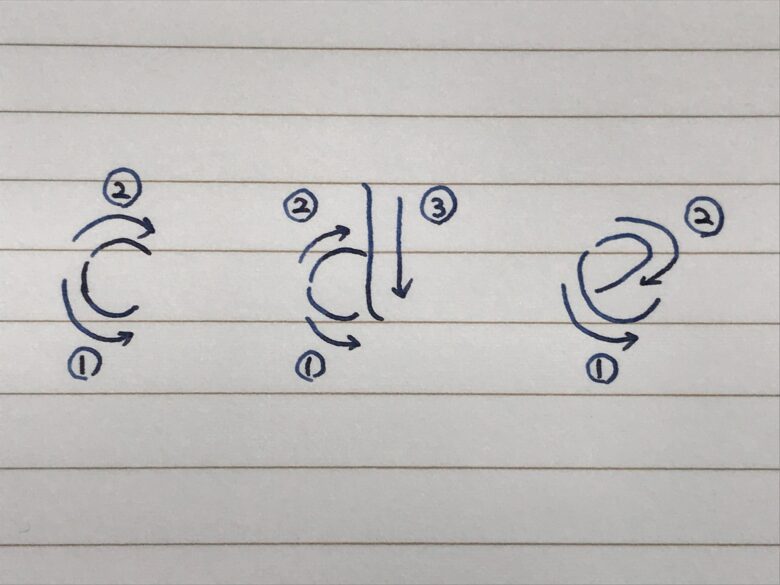 ② ② ③ ②
c d e
① ① ①